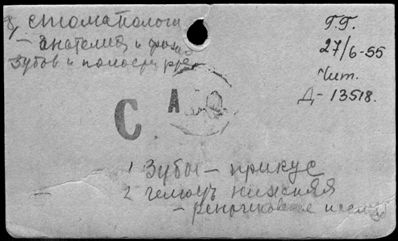 стоматологи
- анатомия и физ
зубов и полости рта
Г.Г.
27/6-55
Чит.
Д-13518.
С А
1 Зубы - прикус
2 челюсть нижняя
- рентгеновское исслед